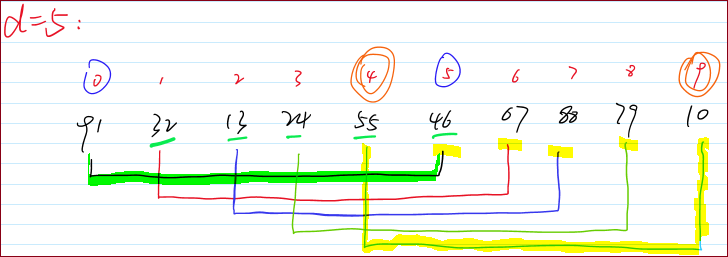 d=5:
0 1 2 3 4 5 6 7 8 9
91 32 13 24 55 46 67 88 79 10